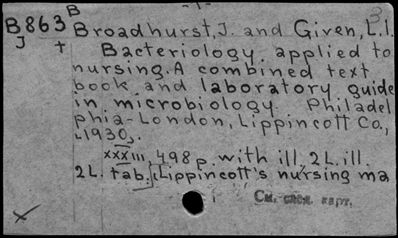 B
B863 Broadhurst, J. and Given, L.I.
J + Bacteriology applied to
nursing. A combined text
book and laboratory guide
in microbiology. Philadel
phia-London, Lippincott Co.,
1930.
XXXIII, 498 p. with ill., 2 L. ill.
2 L. tab. (Lippincott's nursing ma
См. след. карт.